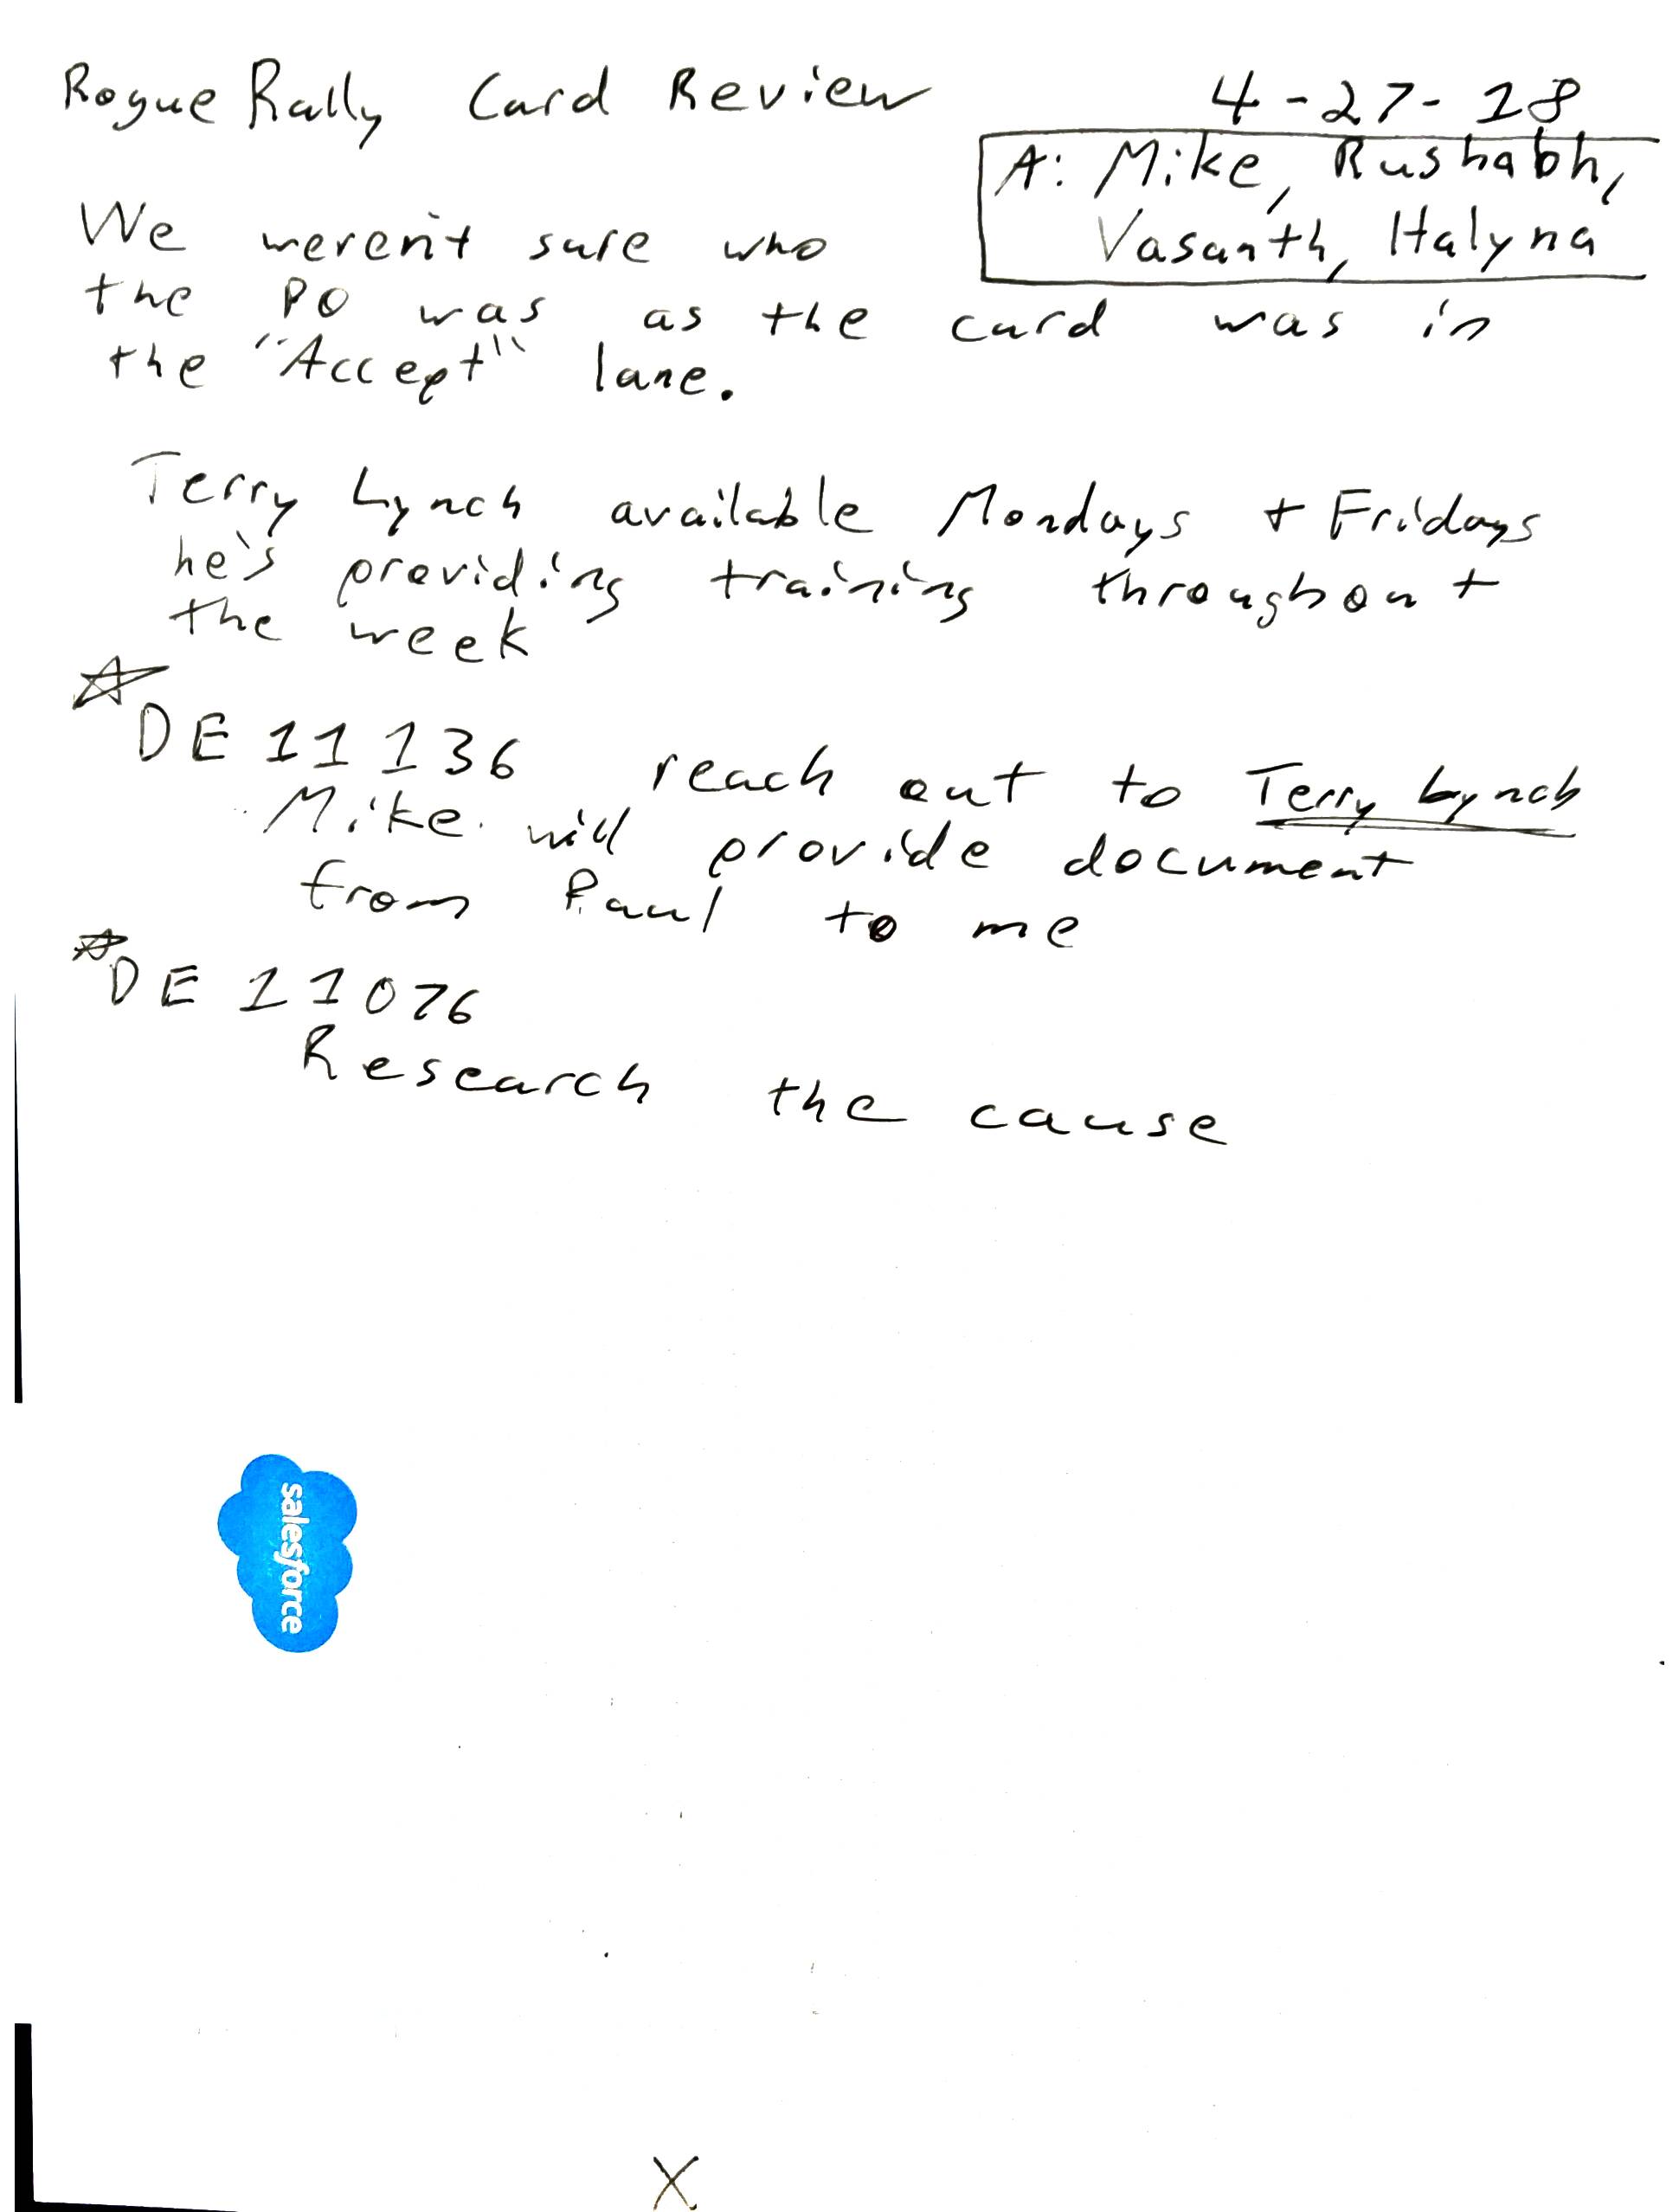 Rogue Rally Card Review
4-27-18
A: Mike, Rushabh,
Vasanth, Halyna
We weren't sure who
the PO was as the card was in
the "Accept" lane.
Terry Lynch available Mondays + Fridays
he's providing training throughout
the week
DE 11136 reach out to Terry Lynch
Mike will provide document
from Paul to me
DE 11076
Research the cause
salesforce
X